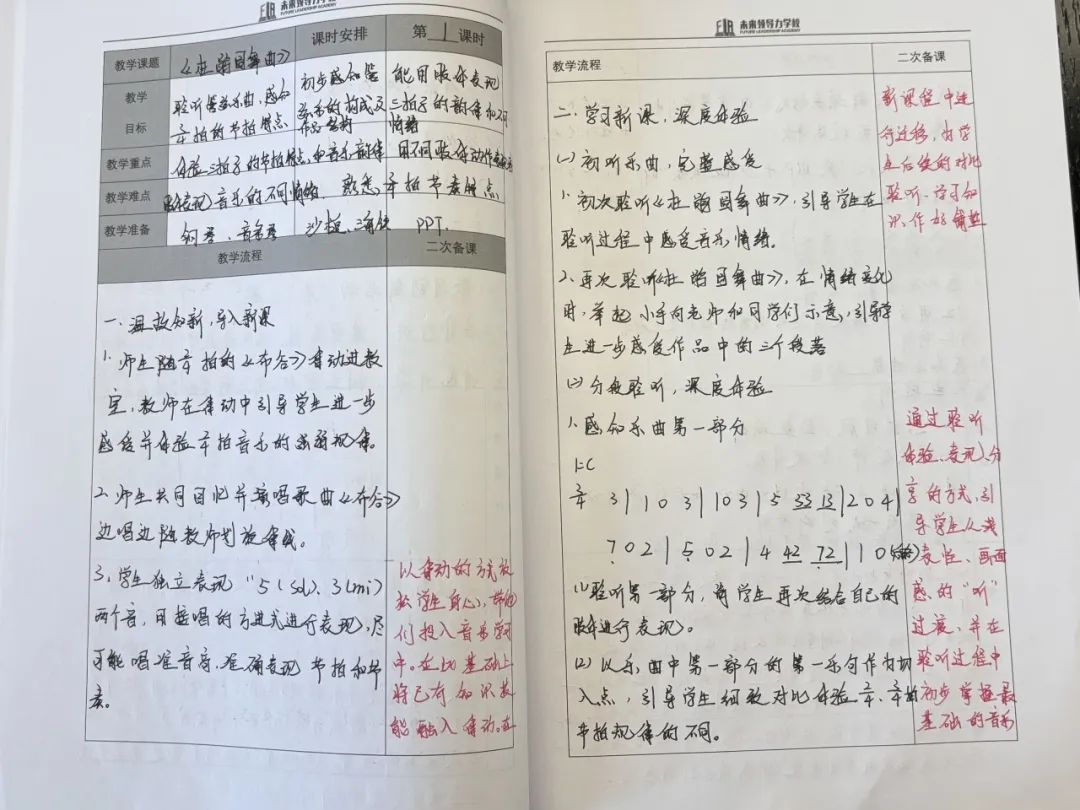 未来领导力学校
FUTURE LEADERSHIP ACADEMY
教学课题
《杜鹃圆舞曲》
课时安排
第 1 课时
教学
目标
聆听管弦乐曲，感知
拍的节拍特点
初步感知管
弦乐的构成及
作品名称
能用肢体表现
三拍子的韵律和不同
情绪
教学重点
体验三拍子的节拍特点和音乐韵律
用不同肢体动作
教学难点
音乐的不同情绪，熟悉
拍节奏特点
教学准备
钢琴、音条琴
沙锤、
PPT.
教学流程
二次备课
一、温故知新，导入新课
1. 师生随 拍的《布谷》律动进教
室，教师在律动中引导学生进一步
感受并体验 拍音乐的强弱规律。
2. 师生共同回忆并演唱歌曲《布谷》
边唱边随教师划旋律线。
3. 学生独立表现"5（sol）、3（mi）
两个音，用接唱的方式进行表现，尽
可能唱准音高，准确表现 节拍和节
奏。
以律动的方式放
松学生身心，
们投入音乐学习
中。在此基础上
将已有知识技
能融入律动。在
未来领导力学校
FUTURE LEADERSHIP ACADEMY
教学流程
二次备课
二、学习新课，深度体验
（一）初听乐曲，完整感受
1. 初次聆听《杜鹃圆舞曲》，引导学生在
聆听过程中感受音乐情绪。
2. 再次聆听《杜鹃圆舞曲》，在情绪变化
时，举起小手向老师和同学们示意，引导学
生进一步感受作品中的三个段落
（二）分段聆听，深度体验
1. 感知乐曲第一部分
1=C
3 | 1 0 3 | 1 0 3 | 5 33 13 | 2 0 4 |
7 0 2 | 5 0 2 | 4 42 72 | 1 0
（1）聆听第一部分，请学生再次结合自己的
肢体进行表现。
（2）以乐曲中第一部分的第一乐句作为切
入点，引导学生细致对比体验 、 拍
节拍规律的不同。
新课程中进
行迁移，为学
生后续的对比
聆听、学习知
识作好铺垫
通过聆听
体验、表现、分
享的方式，引
导学生从浅
表性、画面
感的"听"
过渡，并在
聆听过程中
初步掌握最
基础的音乐